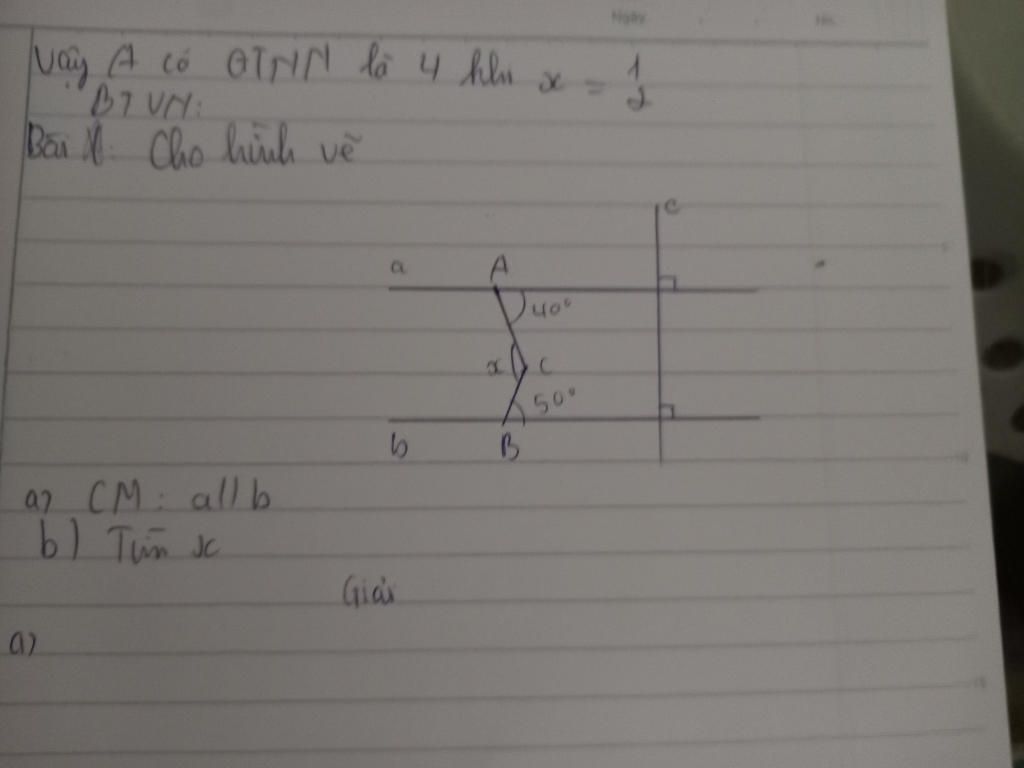 Ngày No.
Vậy A có GTNN là 4 khi x = 1/2
BTVN:
Bài 1: Cho hình vẽ
c
a A
40°
x C
50°
b B
a) CM: a // b
b) Tìm x
Giải
a)